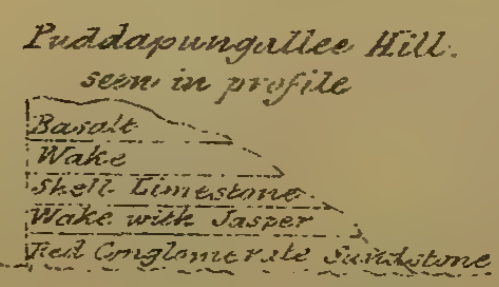 Puddapungallee Hill.
seen in profile
Basalt
Wake
Shell Limestone
Wake with Jasper
Red Conglomerate Sandstone